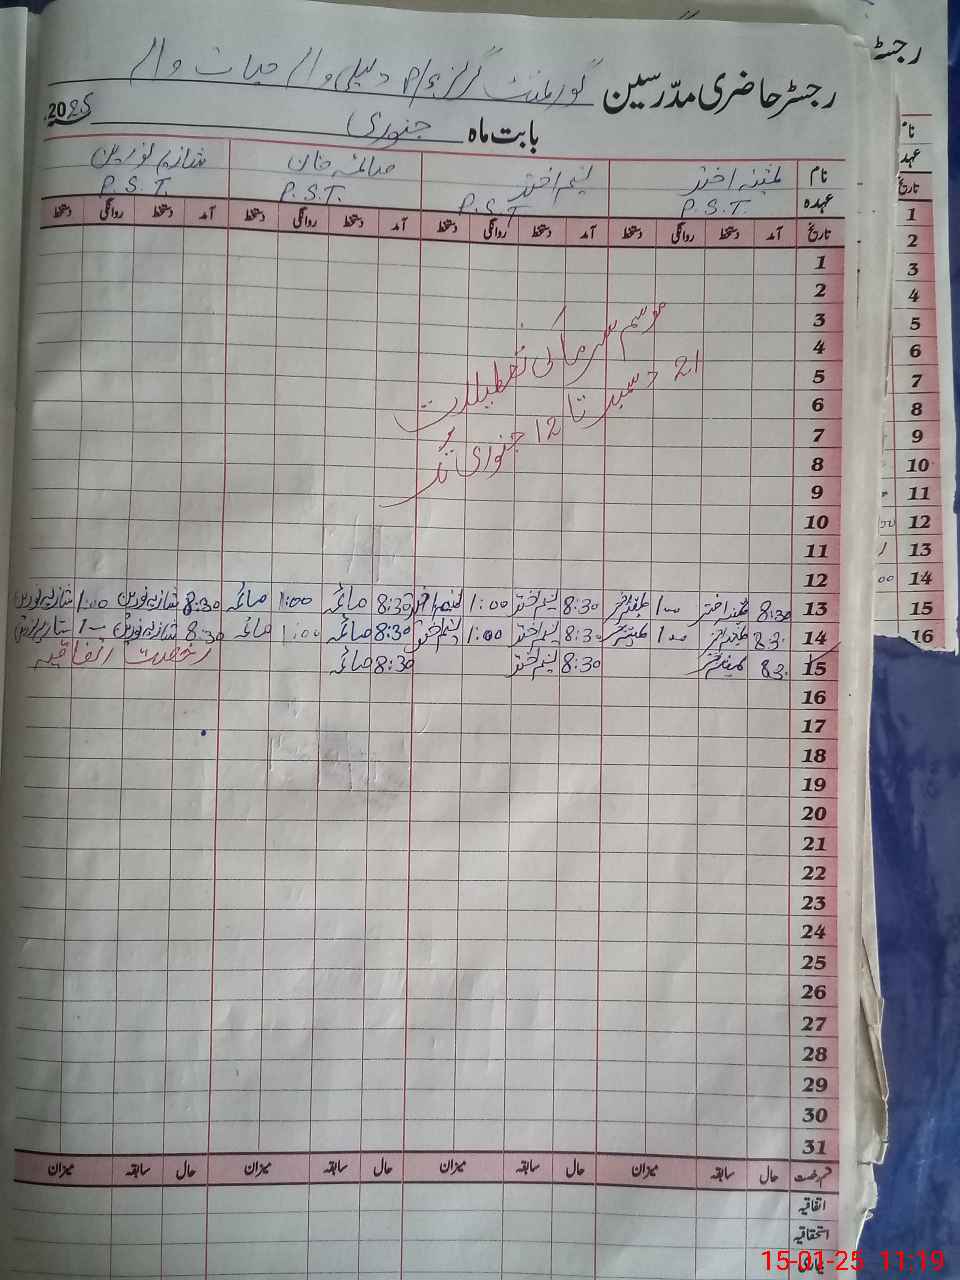 رجسٹر حاضری مدّرسین گورنمنٹ گرلز
بابت ماہ جنوری 2025
نام ثمینہ اختر نسیم اختر صائمہ خان شازیہ نورین
عہدہ P.S.T. P.S.T P.S.T. P.S.T.
تاریخ آمد دستخط روانگی دستخط آمد دستخط روانگی دستخط آمد دستخط روانگی دستخط آمد دستخط روانگی دستخط
1
2
3
موسم سرما کی تعطیلات
4
5
21 دسمبر تا 12 جنوری تک
6
7
8
9
10
11
12
13 8:30 ثمینہ اختر 1:00 8:30 نسیم اختر 1:00 نسیم اختر 8:30 صائمہ 1:00 صائمہ 8:30 شازیہ نورین 1:00 شازیہ نورین
14 8:30 1:00 8:30 نسیم اختر 1:00 نسیم اختر 8:30 صائمہ 1:00 صائمہ 8:30 شازیہ نورین 1:00 شازیہ نورین
15 8:30 8:30 نسیم اختر 8:30 صائمہ رخصت اتفاقیہ
16
17
18
19
20
21
22
23
24
25
26
27
28
29
30
31
قسم رخصت حال سابقہ میزان حال سابقہ میزان حال سابقہ میزان حال سابقہ میزان
اتفاقیہ
استحقاقیہ
رجسٹر
نام
عہدہ
تاریخ
1
2
3
4
5
6
7
8
9
10
11
12
13
14
15
16
15-01-25 11:19